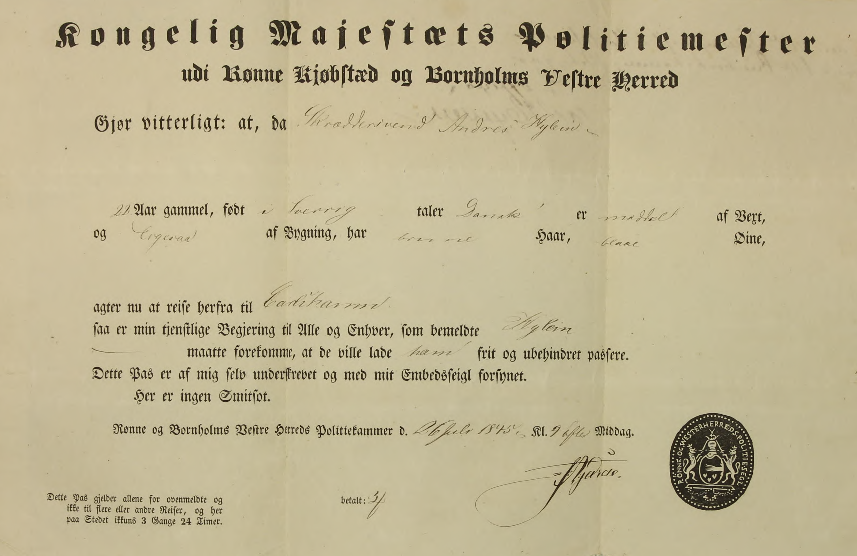 Kongelig Majestæts Politiemester
udi Rønne Kjøbstæd og Bornholms Vestre Herred
Gjør vitterligt: at, da Skræddersvend Andres Hylein
22 Aar gammel, født i Sverrig taler Dansk er middel af Vext,
og af Bygning, har brune Haar, blaae Øine,
agter nu at reise herfra til
saa er min tjenstlige Begjering til Alle og Enhver, som bemeldte Hylein
maatte forekomme, at de ville lade ham frit og ubehindret passere.
Dette Pas er af mig selv underskrevet og med mit Embedsseigl forsynet.
Her er ingen Smitsot.
Rønne og Bornholms Vestre Herreds Politiekammer d. 26 1845 Kl. 9 Middag.
RØNNE OG VESTERHERREDS POLITIE SEGL
Dette Pas gjelder allene for ovenmeldte og
ikke til flere eller andre Reiser, og her
paa Stedet ikkuns 3 Gange 24 Timer.
betalt: